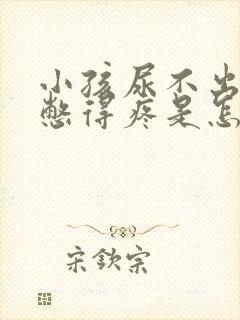 小孩尿不出
憋得疼是怎
宋钦宗